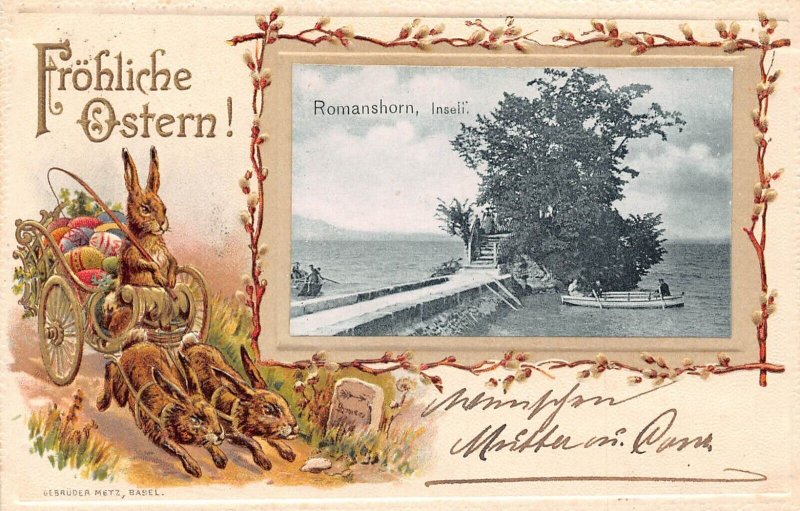 Fröhliche
Ostern!
Romanshorn, Inseli.
wünschen
Mutter u.
GEBRÜDER METZ, BASEL.